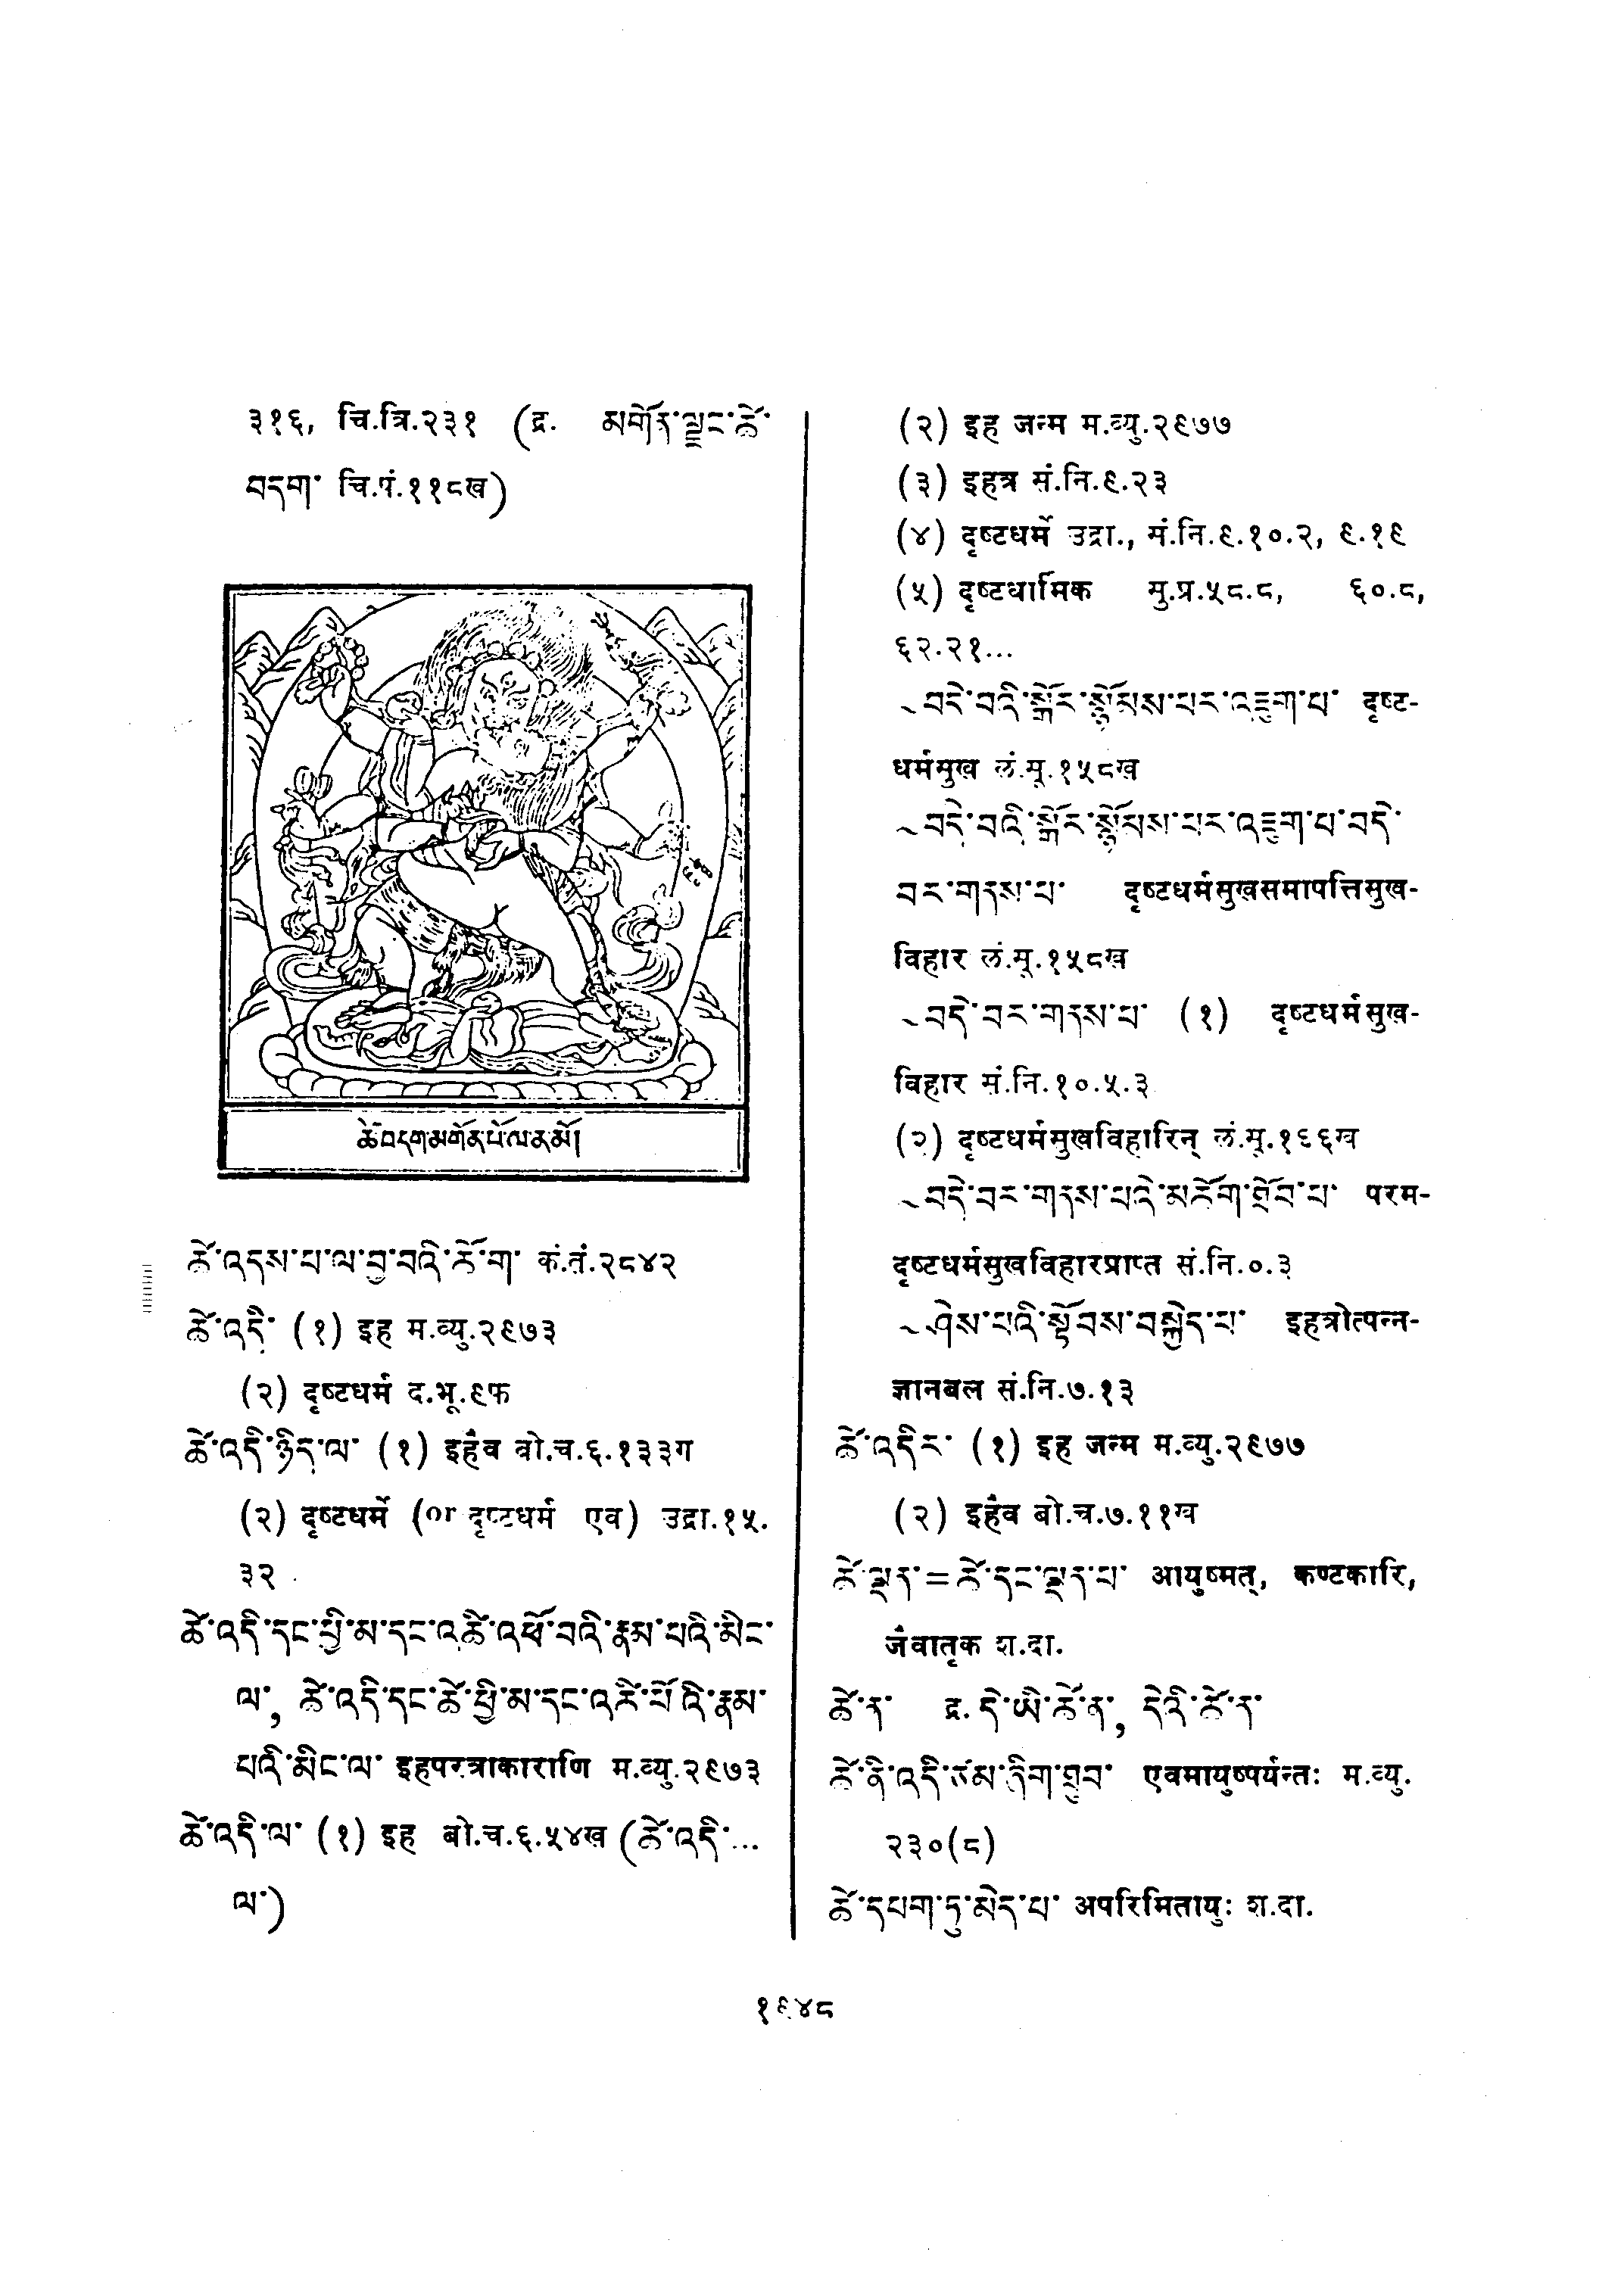 ३१६, चि.त्रि.२३१ (द्र. མགོན་ལྗང་ཚེ་
བདག་ चि.पं.११८ख)
ཚེ་བདག་མགོན་པོ་ལ་ན་མོ།
ཚེ་འདས་པ་ལ་བྱ་བའི་ཆོ་ག་ कं.तं.२८४२
ཚེ་འདི་ (१) इह म.व्यु.२९७३
(२) दृष्टधर्म द.भू.९फ
ཚེ་འདི་ཉིད་ལ་ (१) इहैव बो.च.६.१३३ग
(२) दृष्टधर्मे (or दृष्टधर्म एव) उद्रा.१५.
३२
ཚེ་འདི་དང་ཕྱི་མ་དང་འཚེ་འཕོ་བའི་རྣམ་པའི་མིང་
ལ་, ཚེ་འདི་དང་ཚེ་ཕྱི་མ་དང་འཚེ་པོ་འི་རྣམ་
པའི་མིང་ལ་ इहपरत्राकाराणि म.व्यु.२९७३
ཚེ་འདི་ལ་ (१) इह बो.च.६.५४ख (ཚེ་འདི་...
ལ་)
(२) इह जन्म म.व्यु.२९७७
(३) इहत्र सं.नि.९.२३
(४) दृष्टधर्मे उद्रा., सं.नि.९.१०.२, ९.१९
(५) दृष्टधार्मिक सु.प्र.५८.८, ६०.८,
६२.२१...
~བདེ་བའི་སྒོར་སྙོམས་པར་འཇུག་པ་ दृष्ट-
धर्मसुख लं.सू.१५८ख
~བདེ་བའི་སྒོར་སྙོམས་པར་འཇུག་པ་བདེ་
བར་གནས་པ་ दृष्टधर्मसुखसमापत्तिसुख-
विहार लं.सू.१५८ख
~བདེ་བར་གནས་པ་ (१) दृष्टधर्मसुख-
विहार सं.नि.१०.५.३
(२) दृष्टधर्मसुखविहारिन् लं.सू.१६६ख
~བདེ་བར་གནས་པའི་མཆོག་ཐོབ་པ་ परम-
दृष्टधर्मसुखविहारप्राप्त सं.नि.०.३
~ཤེས་པའི་སྟོབས་བསྐྱེད་པ་ इहत्रोत्पन्न-
ज्ञानबल सं.नि.७.१३
ཚེ་འདིར་ (१) इह जन्म म.व्यु.२९७७
(२) इहैव बो.च.७.११ख
ཚེ་ལྡན་=ཚེ་དང་ལྡན་པ་ आयुष्मत्, कण्टकारि,
जैवातृक श.दा.
ཚེ་ན་ द्र. དེ་ཡི་ཚེ་ན་, དེའི་ཚེ་ན་
ཚེ་ནི་འདི་ཙམ་ཞིག་ཐུབ་ एवमायुष्पर्यन्तः म.व्यु.
२३०(८)
ཚེ་དཔག་ཏུ་མེད་པ་ अपरिमितायुः श.दा.
१९४८